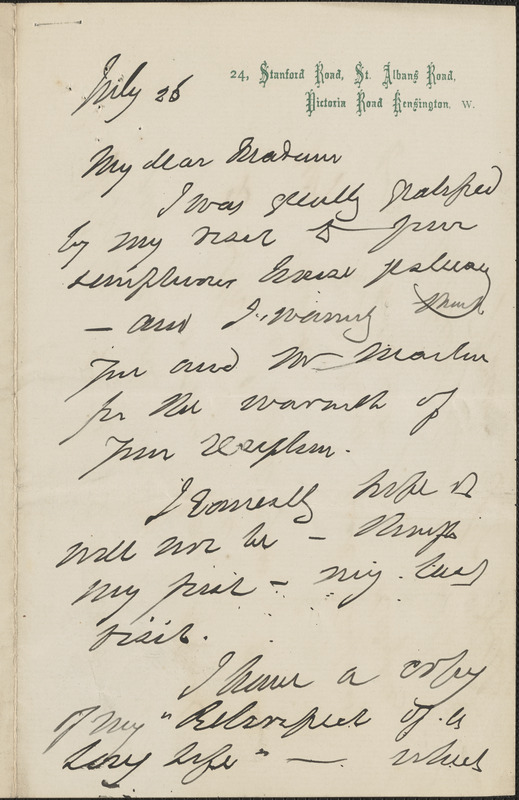 July 26
24, Stanford Road, St. Albans Road,
Victoria Road Kensington, W.
My dear Madam
I was greatly gratified
by my visit to your
sumptuous house yesterday
— and I warmly thank
you and Mr Martin
for the warmth of
your reception.
I earnestly hope it
will not be – though
my first – my last
visit.
I have a copy
of my "Retrospect of a
Long Life" — which